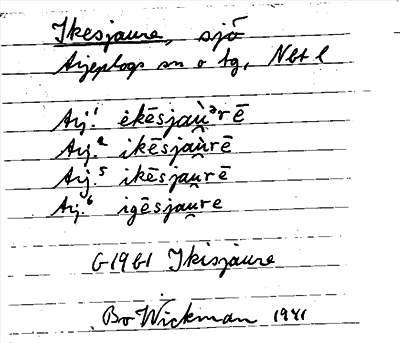 Ikesjaure, sjö
Arjeplogs sn o tg, Nbt l
Arj.¹ ėkēsjaù̯ᵊrē
Arj.² ikēsjàu̯rē
Arj.⁵ ikēsjau̯rē
Arj.⁶ igēsjau̯re
G1961 Ikisjaure
Bo Wickman 1941